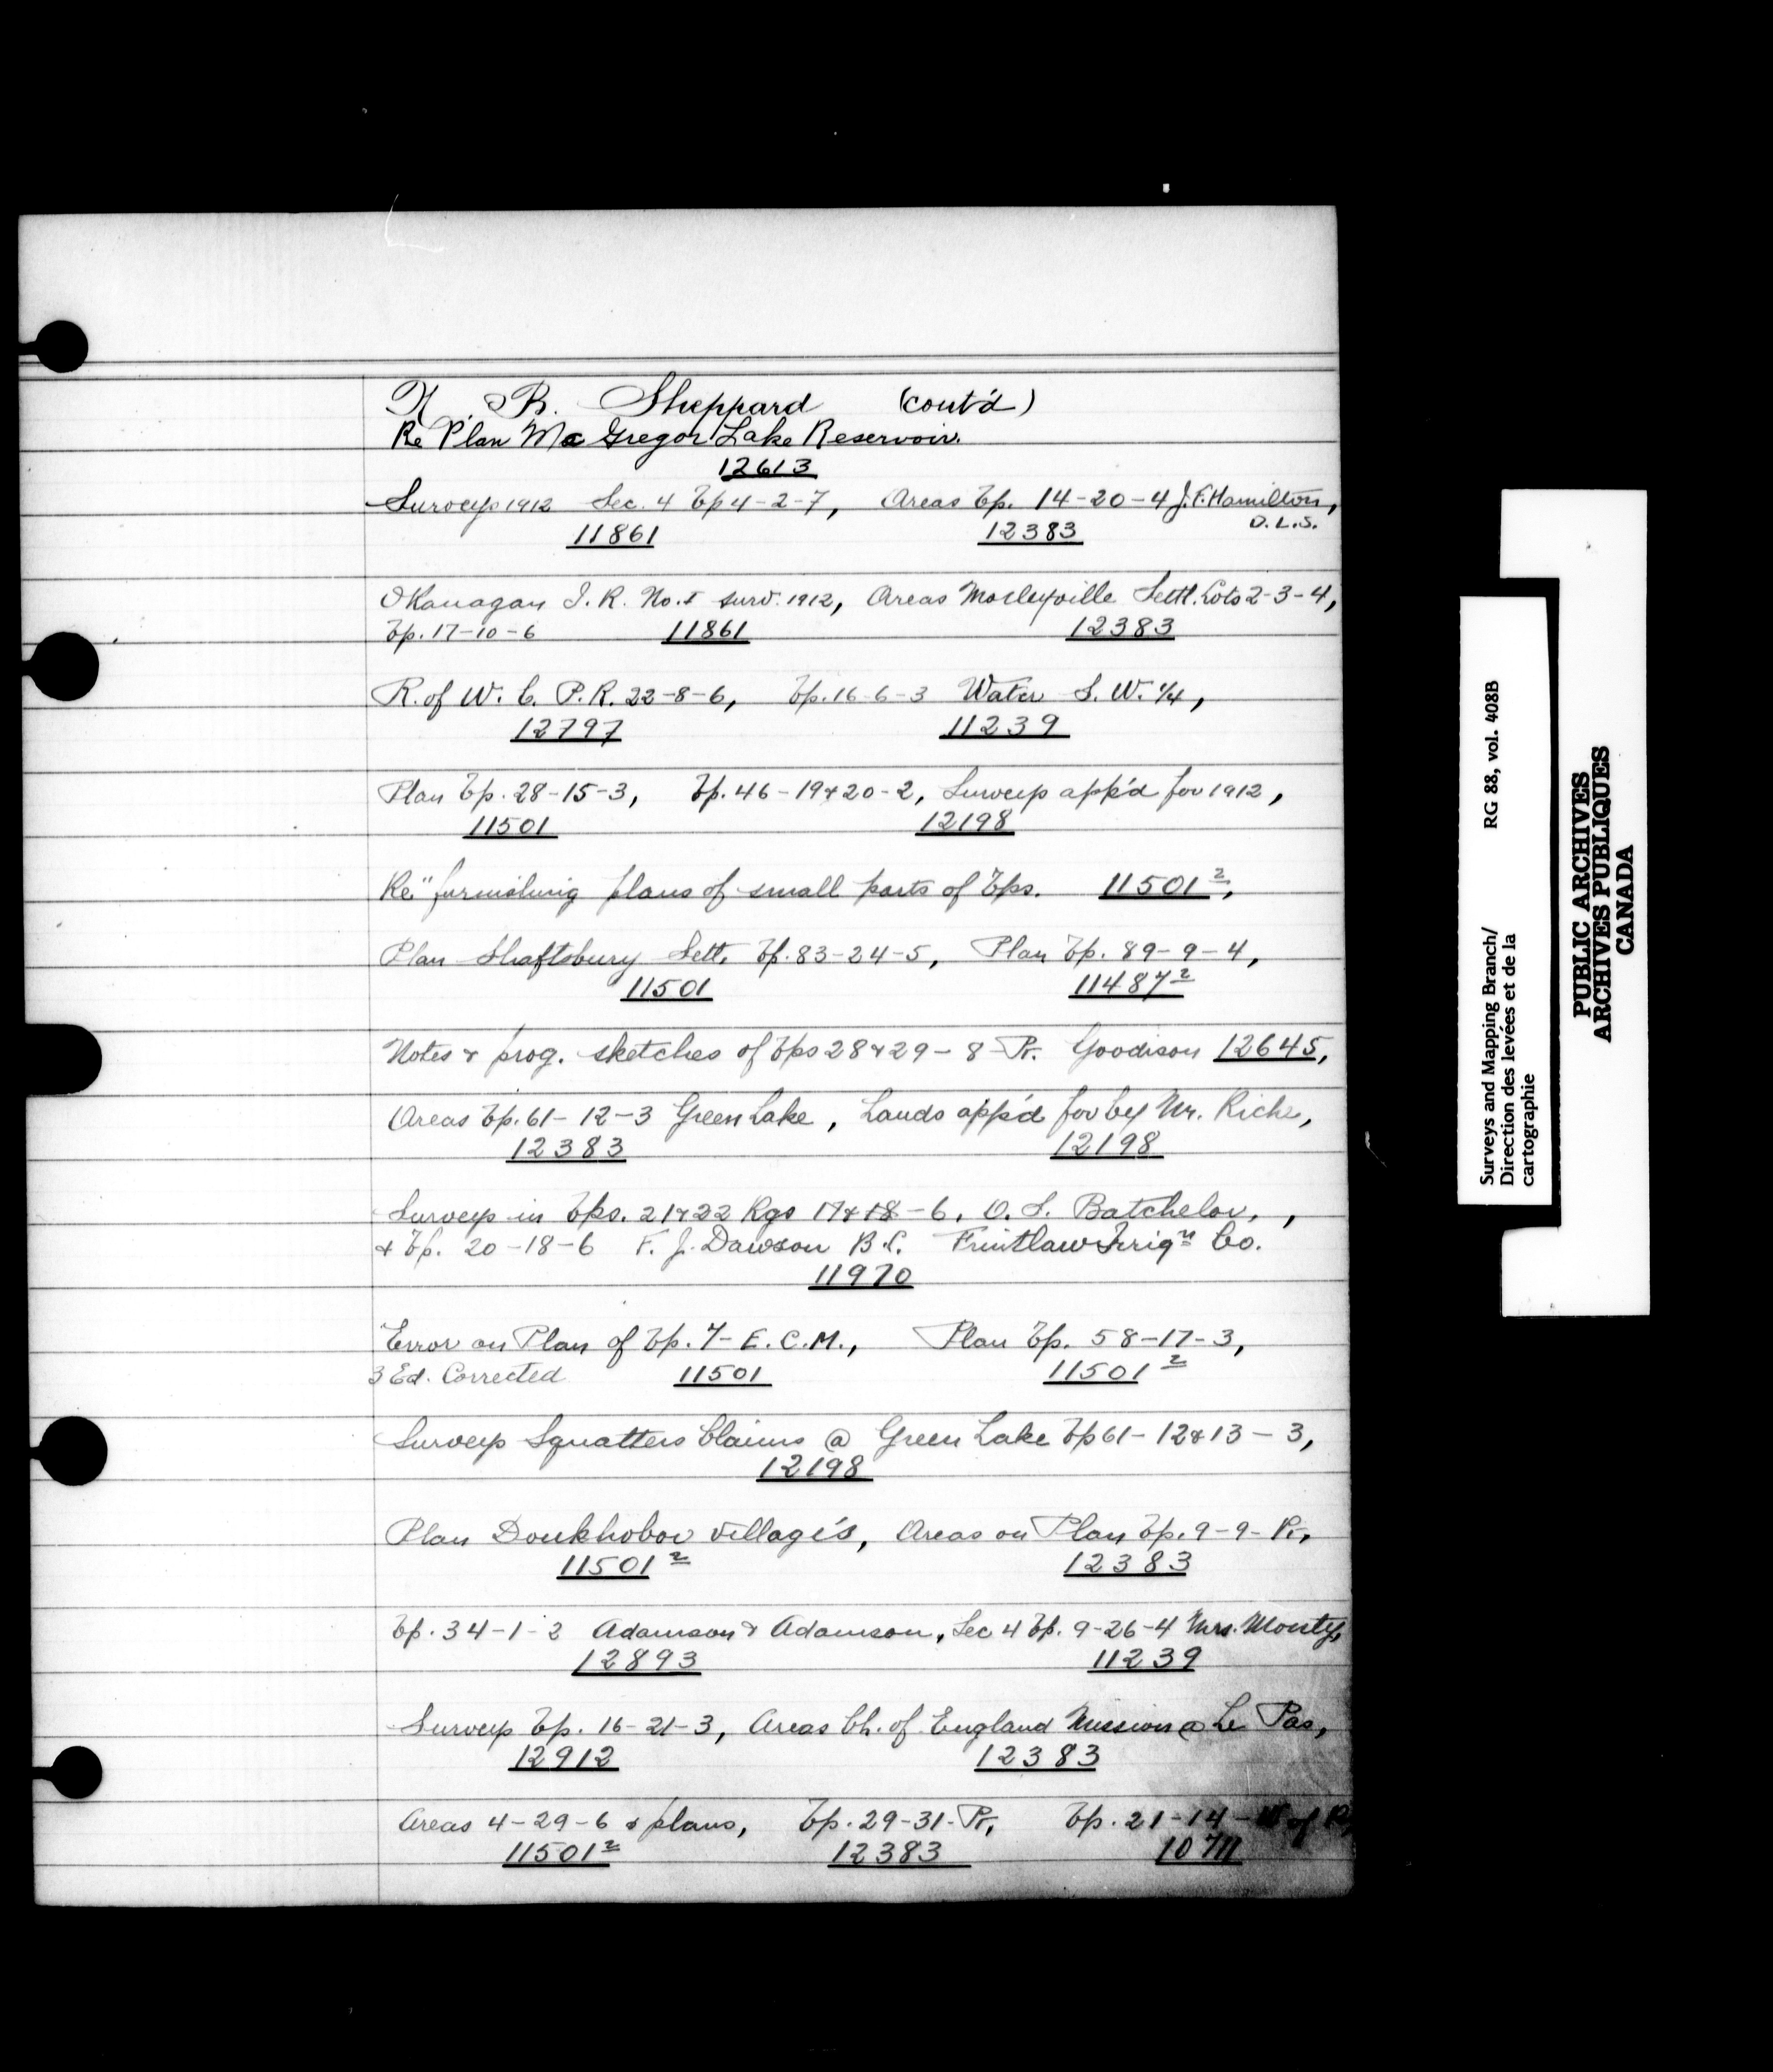 B. Sheppard (cont'd)
Re Plan Mc Gregor Lake Reservoir.
12613
Surveys 1912 Sec. 4 Tp 4-2-7, Areas Tp. 14-20-4 J.F. Hamilton,
D.L.S.
11861 12383
Okanagan I.R. No. 1 surv. 1912, Areas Morleyville Settl. Lots 2-3-4,
Tp. 17-10-6 11861 12383
R. of W. C. P. R. 22-8-6, Tp. 16-6-3 Water S. W. 1/4,
12797 11239
Plan Tp. 28-15-3, Tp. 46-19+20-2, Surveys app'd for 1912,
11501 12198
Re" furnishing plans of small parts of Tps. 11501²,
Plan Shaftsbury Sett. Tp. 83-24-5, Plan Tp. 89-9-4,
11501 11487²
Notes + prog. sketches of Tps 28+29-8-Pr. Goodison 12645,
Areas Tp. 61-12-3 Green Lake, Lands app'd for by Mr. Riche,
12383 12198
Surveys in Tps. 21+22 Rgs 17+18-6, O. S. Batchelor,,
+ Tp. 20-18-6 F. J. Dawson B.C. Fruitlaw Irrigⁿ Co.
11970
Error on Plan of Tp. 7-E.C.M., Plan Tp. 58-17-3,
3 Ed. Corrected 11501 11501²
Surveys Squatters Claims @ Green Lake Tp 61-12+13-3,
12198
Plan Doukhobor village's, Areas on Plan Tp. 9-9-Pr,
11501² 12383
Tp. 34-1-2 Adamson & Adamson, Sec 4 Tp. 9-26-4 Mrs. Monty,
12893 11239
Surveys Tp. 16-21-3, Areas Ch. of England Mission @ Le Pas,
12912 12383
Areas 4-29-6 & plans, Tp. 29-31-Pr, Tp. 21-14-W of P,
11501² 12383 10711
Surveys and Mapping Branch/ RG 88, vol. 408B
Direction des levées et de la
cartographie
PUBLIC ARCHIVES
ARCHIVES PUBLIQUES
CANADA